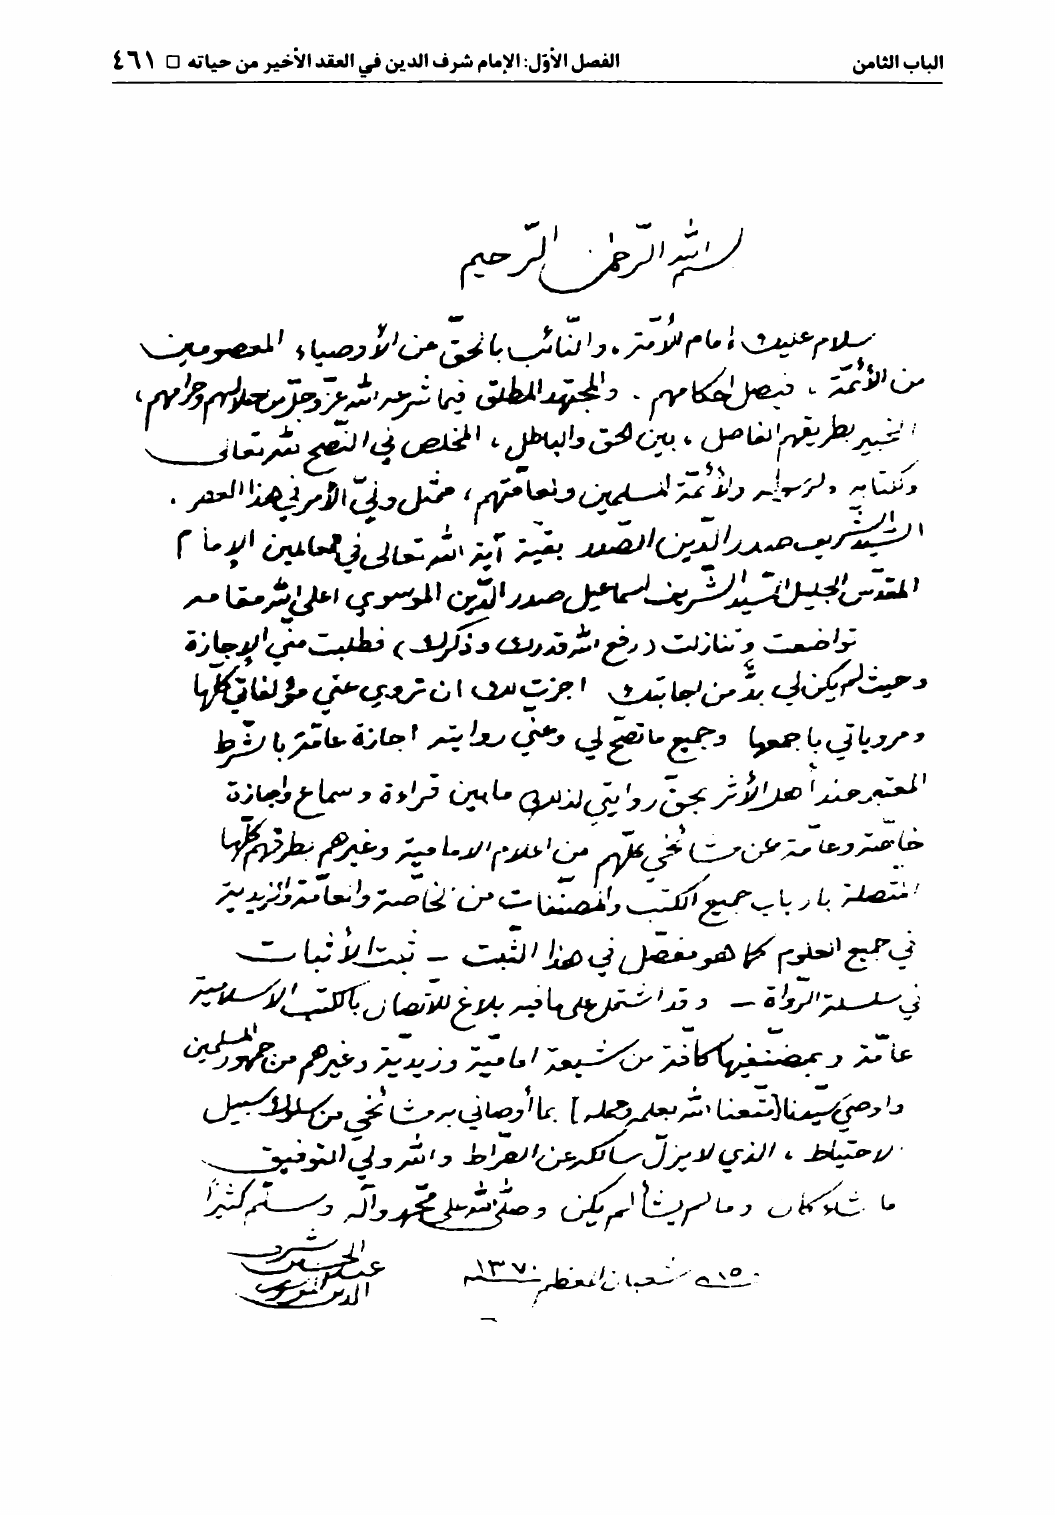 الباب الثامن
الفصل الأوّل: الإمام شرف الدين في العقد الأخير من حياته □ ٤٦١
بسم الله الرّحمن الرّحيم
سلام عليك إمام للأمّة. والنّائب بالحقّ عن الأوصياء المعصومين
من الأئمّة. فيصل احكامهم. والمجتهد المطلق فيما شرعه الله عزّ وجلّ من حلالهم وحرامهم،
الخبير بطريقهم الفاصل، بين الحق والباطل، المخلص في النّصح لله تعالى
ولكتابه ولرسوله ولأئمّة المسلمين ولعامّتهم، ممثل وليّ الأمر في هذا العصر.
السّيد الشّريف صدر الدّين الصّدر بقيّة آية الله تعالى في العالمين الإمام
المقدّس الجليل السّيد الشّريف اسماعيل صدر الدّين الموسوي اعلى الله مقامه
تواضعت وتنازلت (رفع الله قدرك وذكرك) فطلبت منّي الإجازة
وحيث لم يكن لي بدّ من إجابتك اجزت لك ان تروي عنّي مؤلفاتي كلّها
ومروياتي باجمعها وجميع ما تصحّ لي وعنّي روايته اجازة عامّة بالشّرط
المعتبر عند أهل الأثر بحقّ روايتي لذلك ما بين قراءة وسماع واجازة
خاصّة وعامّة عن مشائخي كلّهم من اعلام الاماميّة وغيرهم بطرقهم كلّها
المتّصلة بارباب جميع الكتب والمصنّفات من الخاصّة والعامّة والزيدية
في جميع العلوم كما هو مفصّل في هذا الثّبت – ثبت الأثبات
في سلسلة الرّواة – وقد اشتمل على ما فيه بلاغ للاتّصال بالكتب الاسلاميّة
عامّة وبمصنّفيها كافّة من شيعة اماميّة وزيديّة وغيرهم من جمهور المسلمين
واوصي سيّدنا (متّعنا الله بعلمه وعمله) بما أوصاني به مشائخي من سلوك سبيل
الاحتياط، الذي لا يزلّ سالكه عن الصّراط والله وليّ التوفيق
ما شاء كان وما لم يشأ لم يكن وصلّى الله على محمّد وآله وسلّم كثيرًا
١٥ شعبان المعظم سنة ١٣٧٠
عبد الحسين شرف
الدين الموسوي